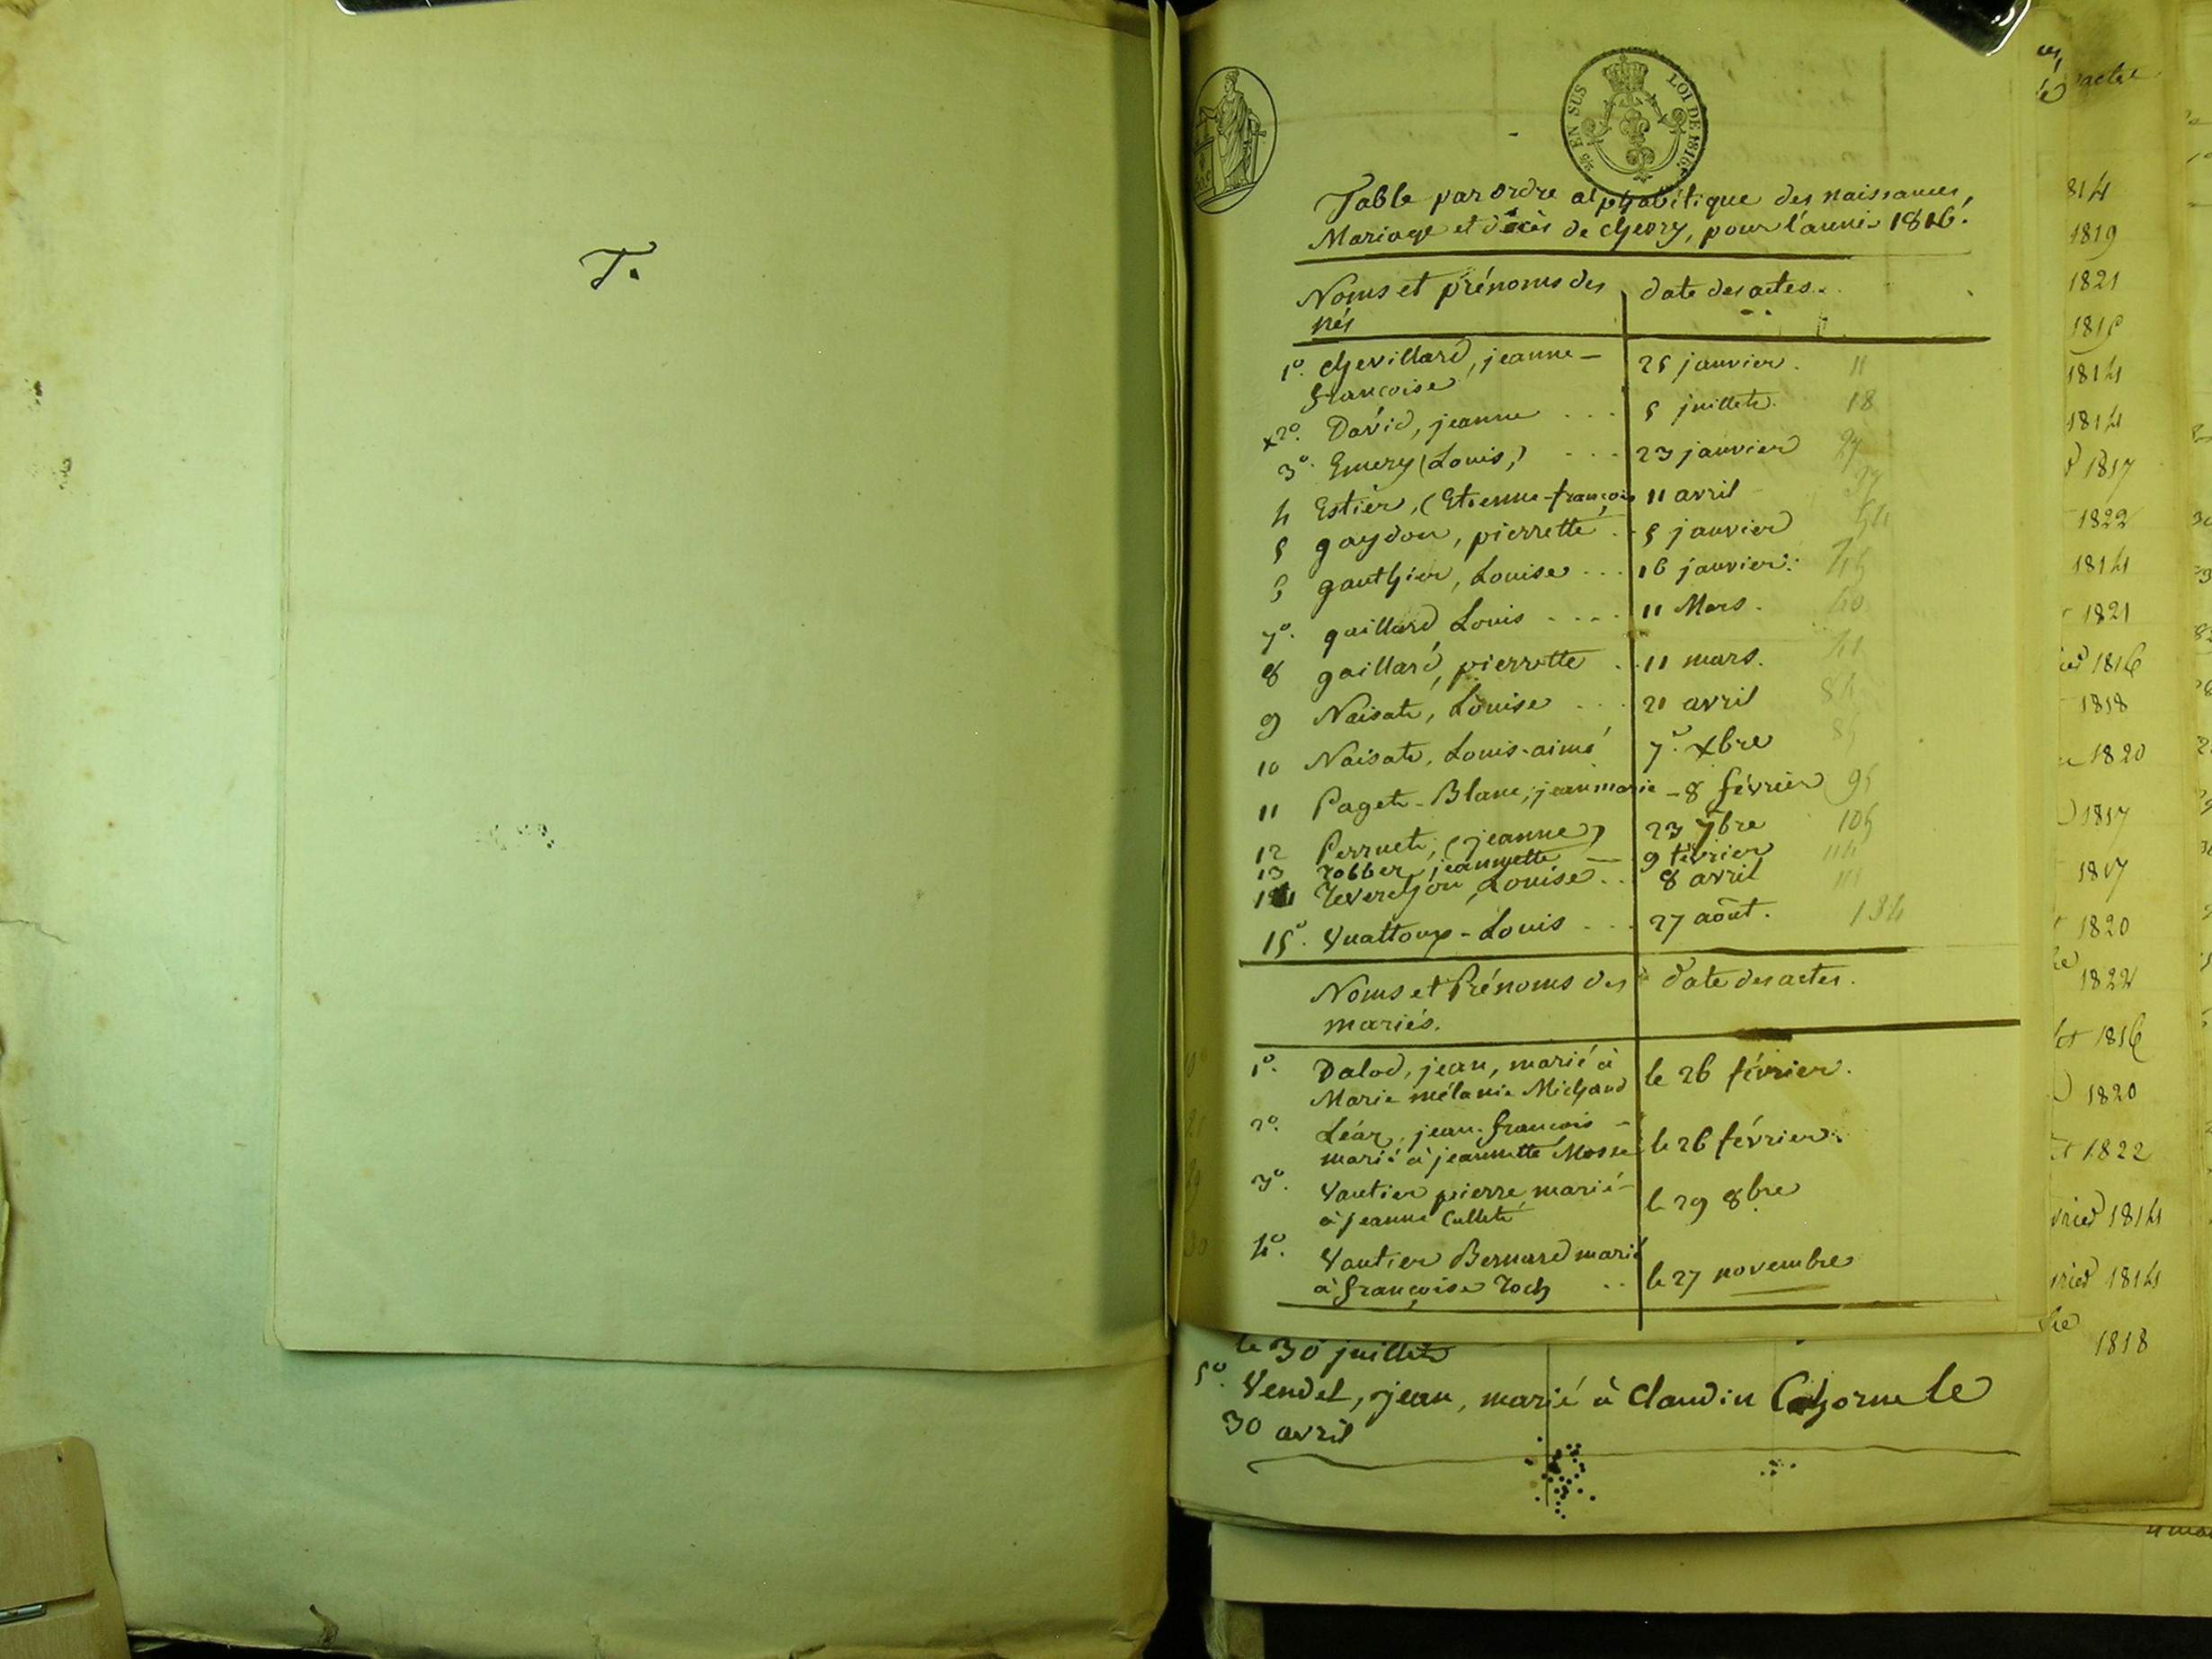 T.
EN SUS
LOI DE 1816.
Table par ordre alphabétique des naissances,
Mariage et décès de chevry, pour l'année 1816.
Noms et prénoms des
nés
date des actes.
1º. chevillard, jeanne - 25 janvier. 11
françoise
x 2º. David, jeanne . . . 5 juillet. 18
3º. Emery (Louis,) . . . 23 janvier
4 Estier, (Etienne-françois 11 avril
5 gaydon, pierrette . . 5 janvier
6 gauthier, Louise . . . 16 janvier.
7º. gaillard Louis . . . . 11 Mars. 40
8 gaillard, pierrette . . 11 mars. 41
9 Naisat, Louise . . . 21 avril 84
10 Naisat, Louis-aimé 7. xbre 85
11 Paget-Blanc, jean marie - 8 février 95
12 Perruet, (jeanne) 23 7bre 105
13 robber, jeannette - 9 février
14 reverchon, Louise . . 8 avril
15º. Vuattoux-Louis . . . 27 août. 134
Noms et Prénoms des
mariés.
date des actes.
1º. Dalod, jean, marié à
Marie mélanie Michaud le 26 février.
2º. Léaz, jean-françois -
marié à jeannette le 26 février.
3º. Vautier pierre, marié -
à jeanne Cullet le 29 8bre
4º. Vautier Bernard marié
à françoise roch . . le 27 novembre
le 30 juillet
5º. Vendel, jean, marié à Claudin le
30 avril
actes
814
1819
1821
1815
1814
1814
1817
1822
1814
1821
1816
1818
1820
1817
1817
1820
1822
1816
1820
1822
vrier 1814
vrier 1814
1818